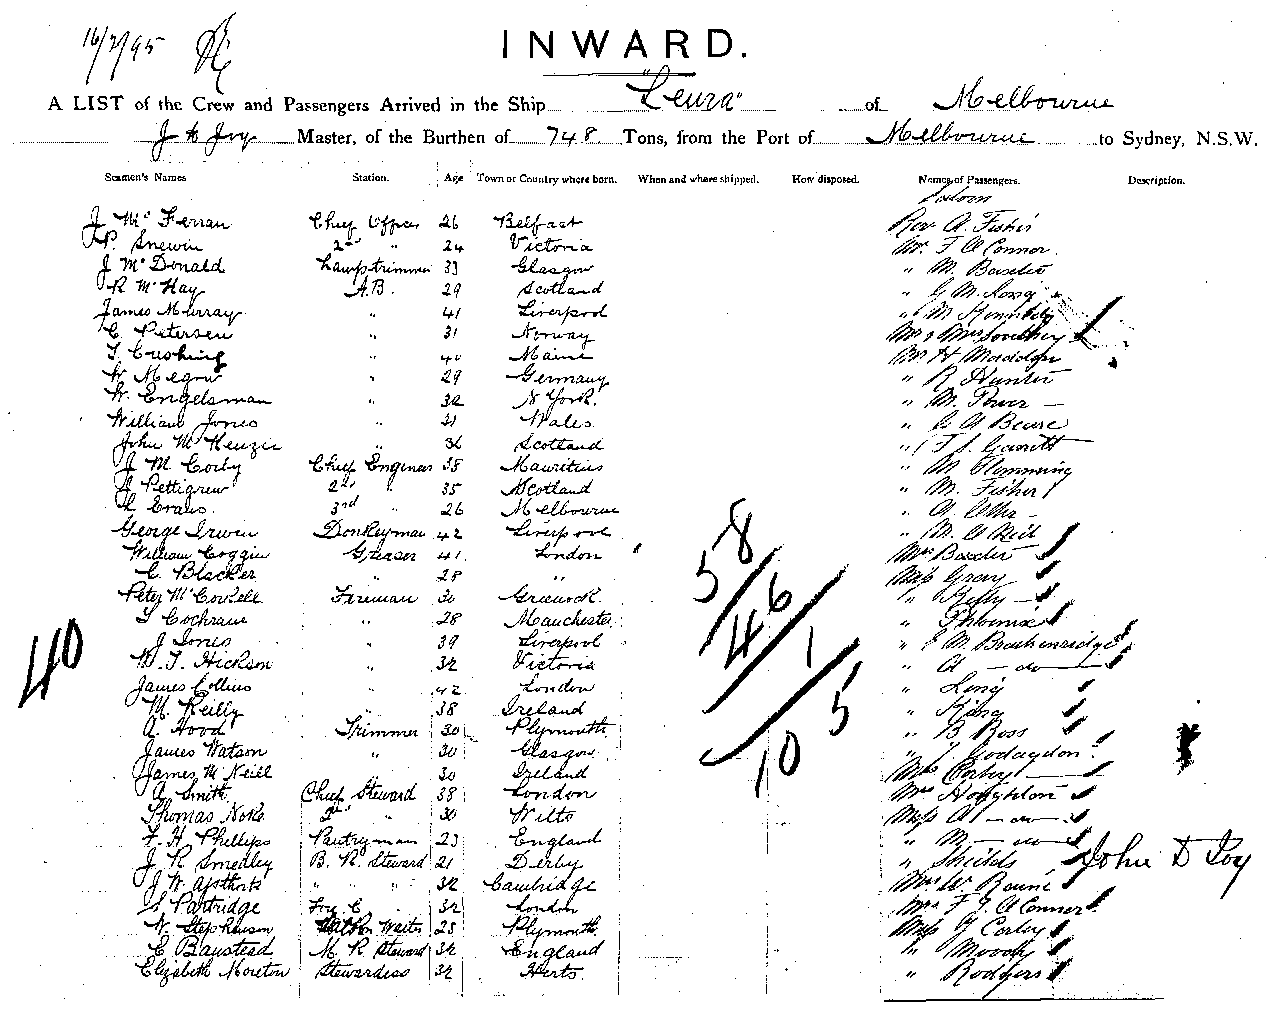 16/7/95
INWARD.
A LIST of the Crew and Passengers Arrived in the Ship "Leura" of Melbourne
Joy Master, of the Burthen of 748 Tons, from the Port of Melbourne to Sydney, N.S.W.
Seamen's Names Station. Age Town or Country where born. When and where shipped. How disposed. Names of Passengers. Description.
Saloon
J McFerran Chief Officer 26 Belfast Rev A. Fisher
P. Snewin 2nd " 24 Victoria Mr F O Connor
J McDonald Lamptrimmer 33 Glasgow " M. Baxter
R McKay A.B. 29 Scotland " G M. Long
James Murray " 41 Liverpool " M
C. Petersen " 31 Norway Mr & Mrs Southey
T Cushing " 40 Maine Mr H Madden
W. Megow " 29 Germany " R Hunter
W. Engelsman " 32 N York. " M. Power
William Jones " 31 Wales "
John McKenzie " 36 Scotland " Garrett
J M Corby Chief Engineer 38 Mauritius " M Flemming
J Pettigrew 2nd " 35 Scotland " M. Fisher
Evans 3rd " 26 Melbourne "
George Irwin Donkeyman 42 Liverpool " M. O Neil
William Coggin Greaser 41 London Mrs Baxter
C. Blacker " 28 " Miss Gray
Peter McCorkell Fireman 30 Greenock " Kelly
T Cochrane " 28 Manchester " Phoenix
J Jones " 39 Liverpool " J M Brackenridge
W. T. Hickson " 32 Victoria " A - do -
James Collins " 42 London " Ling
M. Reilly " 38 Ireland " King
A. Hood Trimmer 30 Plymouth " B Ross
James Watson " 30 Glasgow "
James McNeill 30 Ireland Mrs Corby
A Smith Chief Steward 38 London Mrs Houghton
Thomas Noke 2nd " 30 Wilts Miss A - do -
F. H Phillips Pantryman 23 England " M - do -
J R Smedley B. R. Steward 21 Derby " Shields
J W " " " 32 Cambridge Mrs W.
S Partridge Fore C " 32 London Mrs F. J. O Connor
N. Stephenson Saloon Waiter 25 Plymouth Miss G Corby
C Banstead M. R Steward 32 England " Moody
Elizabeth Moreton Stewardess 32 Herts. " Rodgers
40
58
46
1
105
John D Joy